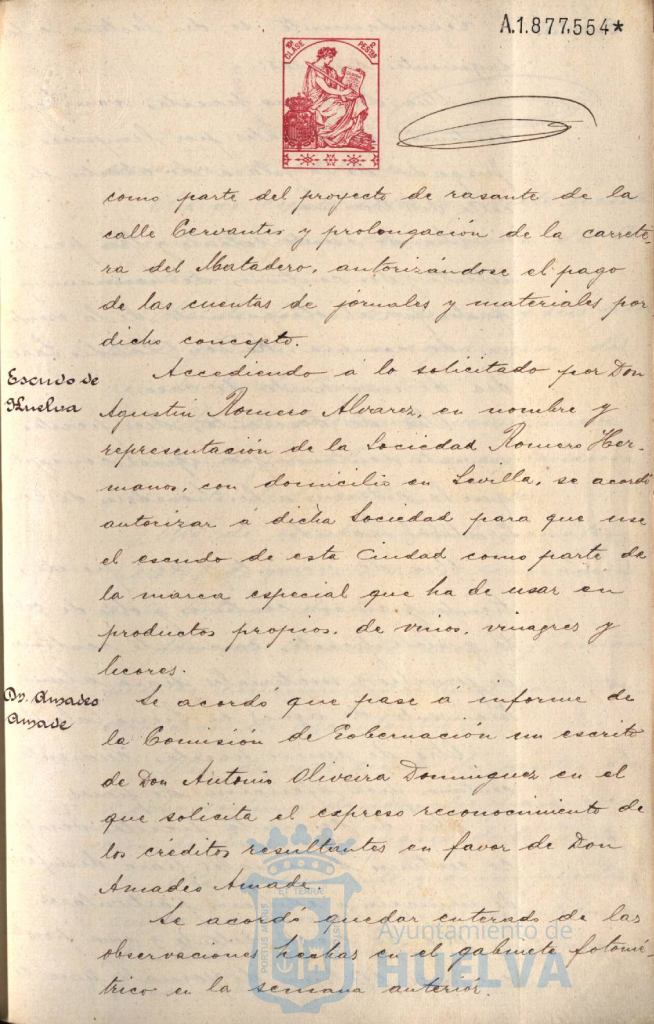 A.1.877,554*
CLASE
PESTAS
como parte del proyecto de rasante de la
calle Cervantes y prolongación de la carrete-
ra del Matadero, autorizándose el pago
de las cuentas de jornales y materiales por
dicho concepto.
Escudo de
Huelva
Accediendo á lo solicitado por Don
Agustín Romero Alvarez, en nombre y
representación de la Sociedad Romero Her-
manos, con domicilio en Sevilla, se acordó
autorizar á dicha Sociedad para que use
el escudo de esta Ciudad como parte de
la marca especial que ha de usar en
productos propios, de vinos, vinagres y
licores.
Dn. Amadeo
Amade
Se acordó que pase á informe de
la Comisión de Gobernación un escrito
de Don Antonio Oliveira Domínguez en el
que solicita el expreso reconocimiento de
los créditos resultantes en favor de Don
Amadeo Amade.
Se acordó quedar enterado de las
observaciones hechas en el gabinete fotomé-
trico en la semana anterior.
Ayuntamiento de
HUELVA